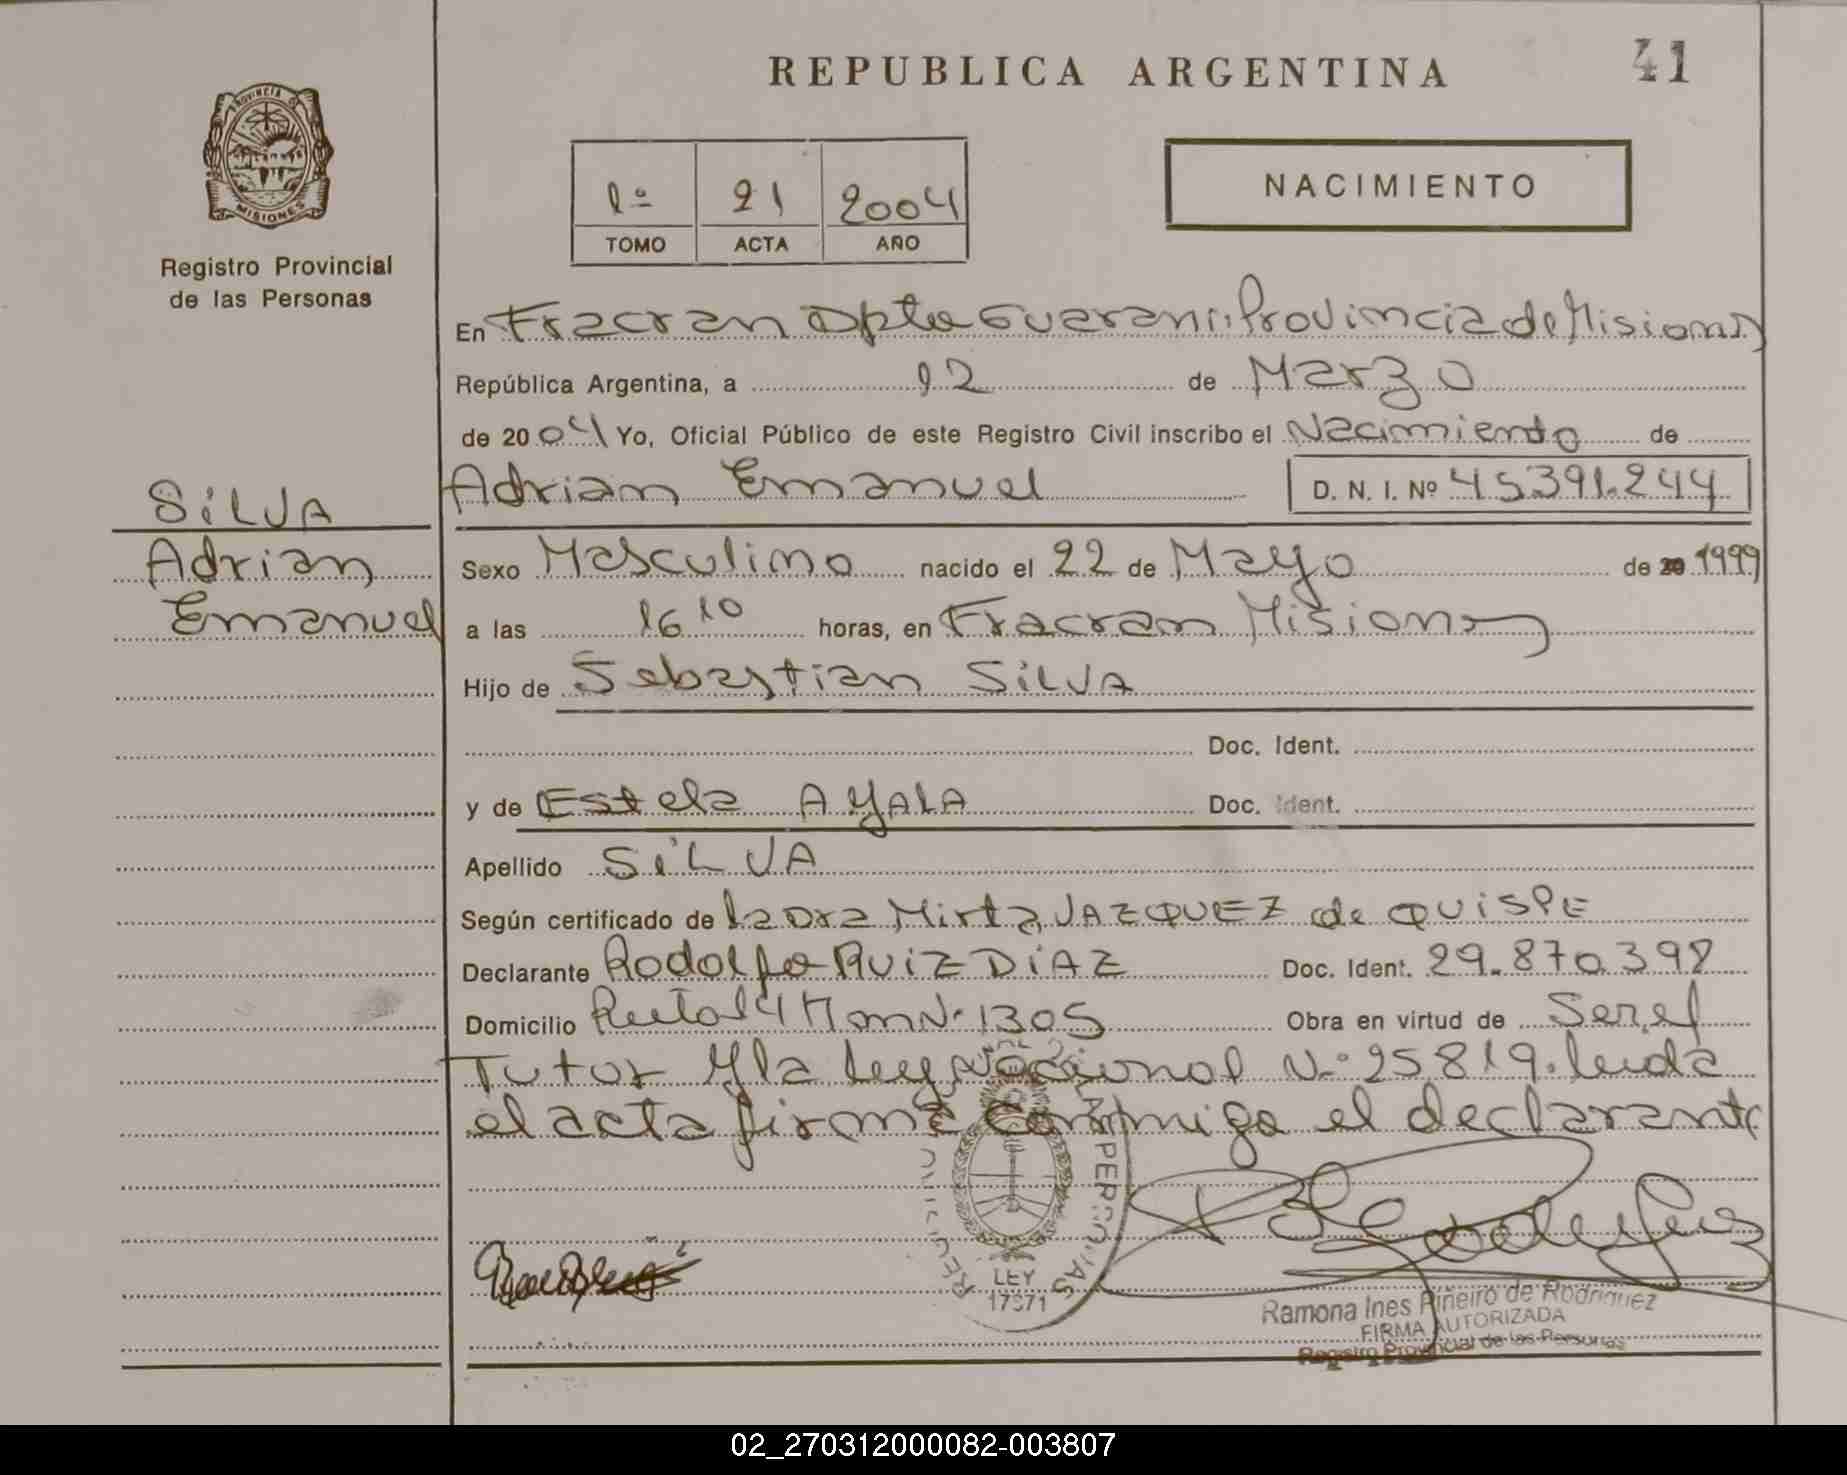 REPUBLICA ARGENTINA
41
PROVINCIA DE
MISIONES
Registro Provincial
de las Personas
1º 21 2004
TOMO ACTA AÑO
NACIMIENTO
En Fracran Dpto Guarani Provincia de Misiones
República Argentina, a 12 de Marzo
de 2004 Yo, Oficial Público de este Registro Civil inscribo el Nacimiento de
SILVA
Adrian Emanuel D. N. I. Nº 45391.244
Adrian
Emanuel
Sexo Masculino nacido el 22 de Mayo de 20 1999
a las 16 10 horas, en Fracran Misiones
Hijo de Sebastian SILVA
Doc. Ident.
y de Estela AYALA Doc. Ident.
Apellido SILVA
Según certificado de la Dra Mirta VAZQUEZ de QUISPE
Declarante Rodolfo RUIZ DIAZ Doc. Ident. 29.870.398
Domicilio Ruta 14 Km N° 1305 Obra en virtud de Ser el
Tutor y la Ley Nacional N° 25819. Leida
el acta firma conmigo el declarante
LEY
17671
Ramona Ines Piñeiro de Rodriguez
FIRMA AUTORIZADA
Registro Provincial de las Personas
02_270312000082-003807